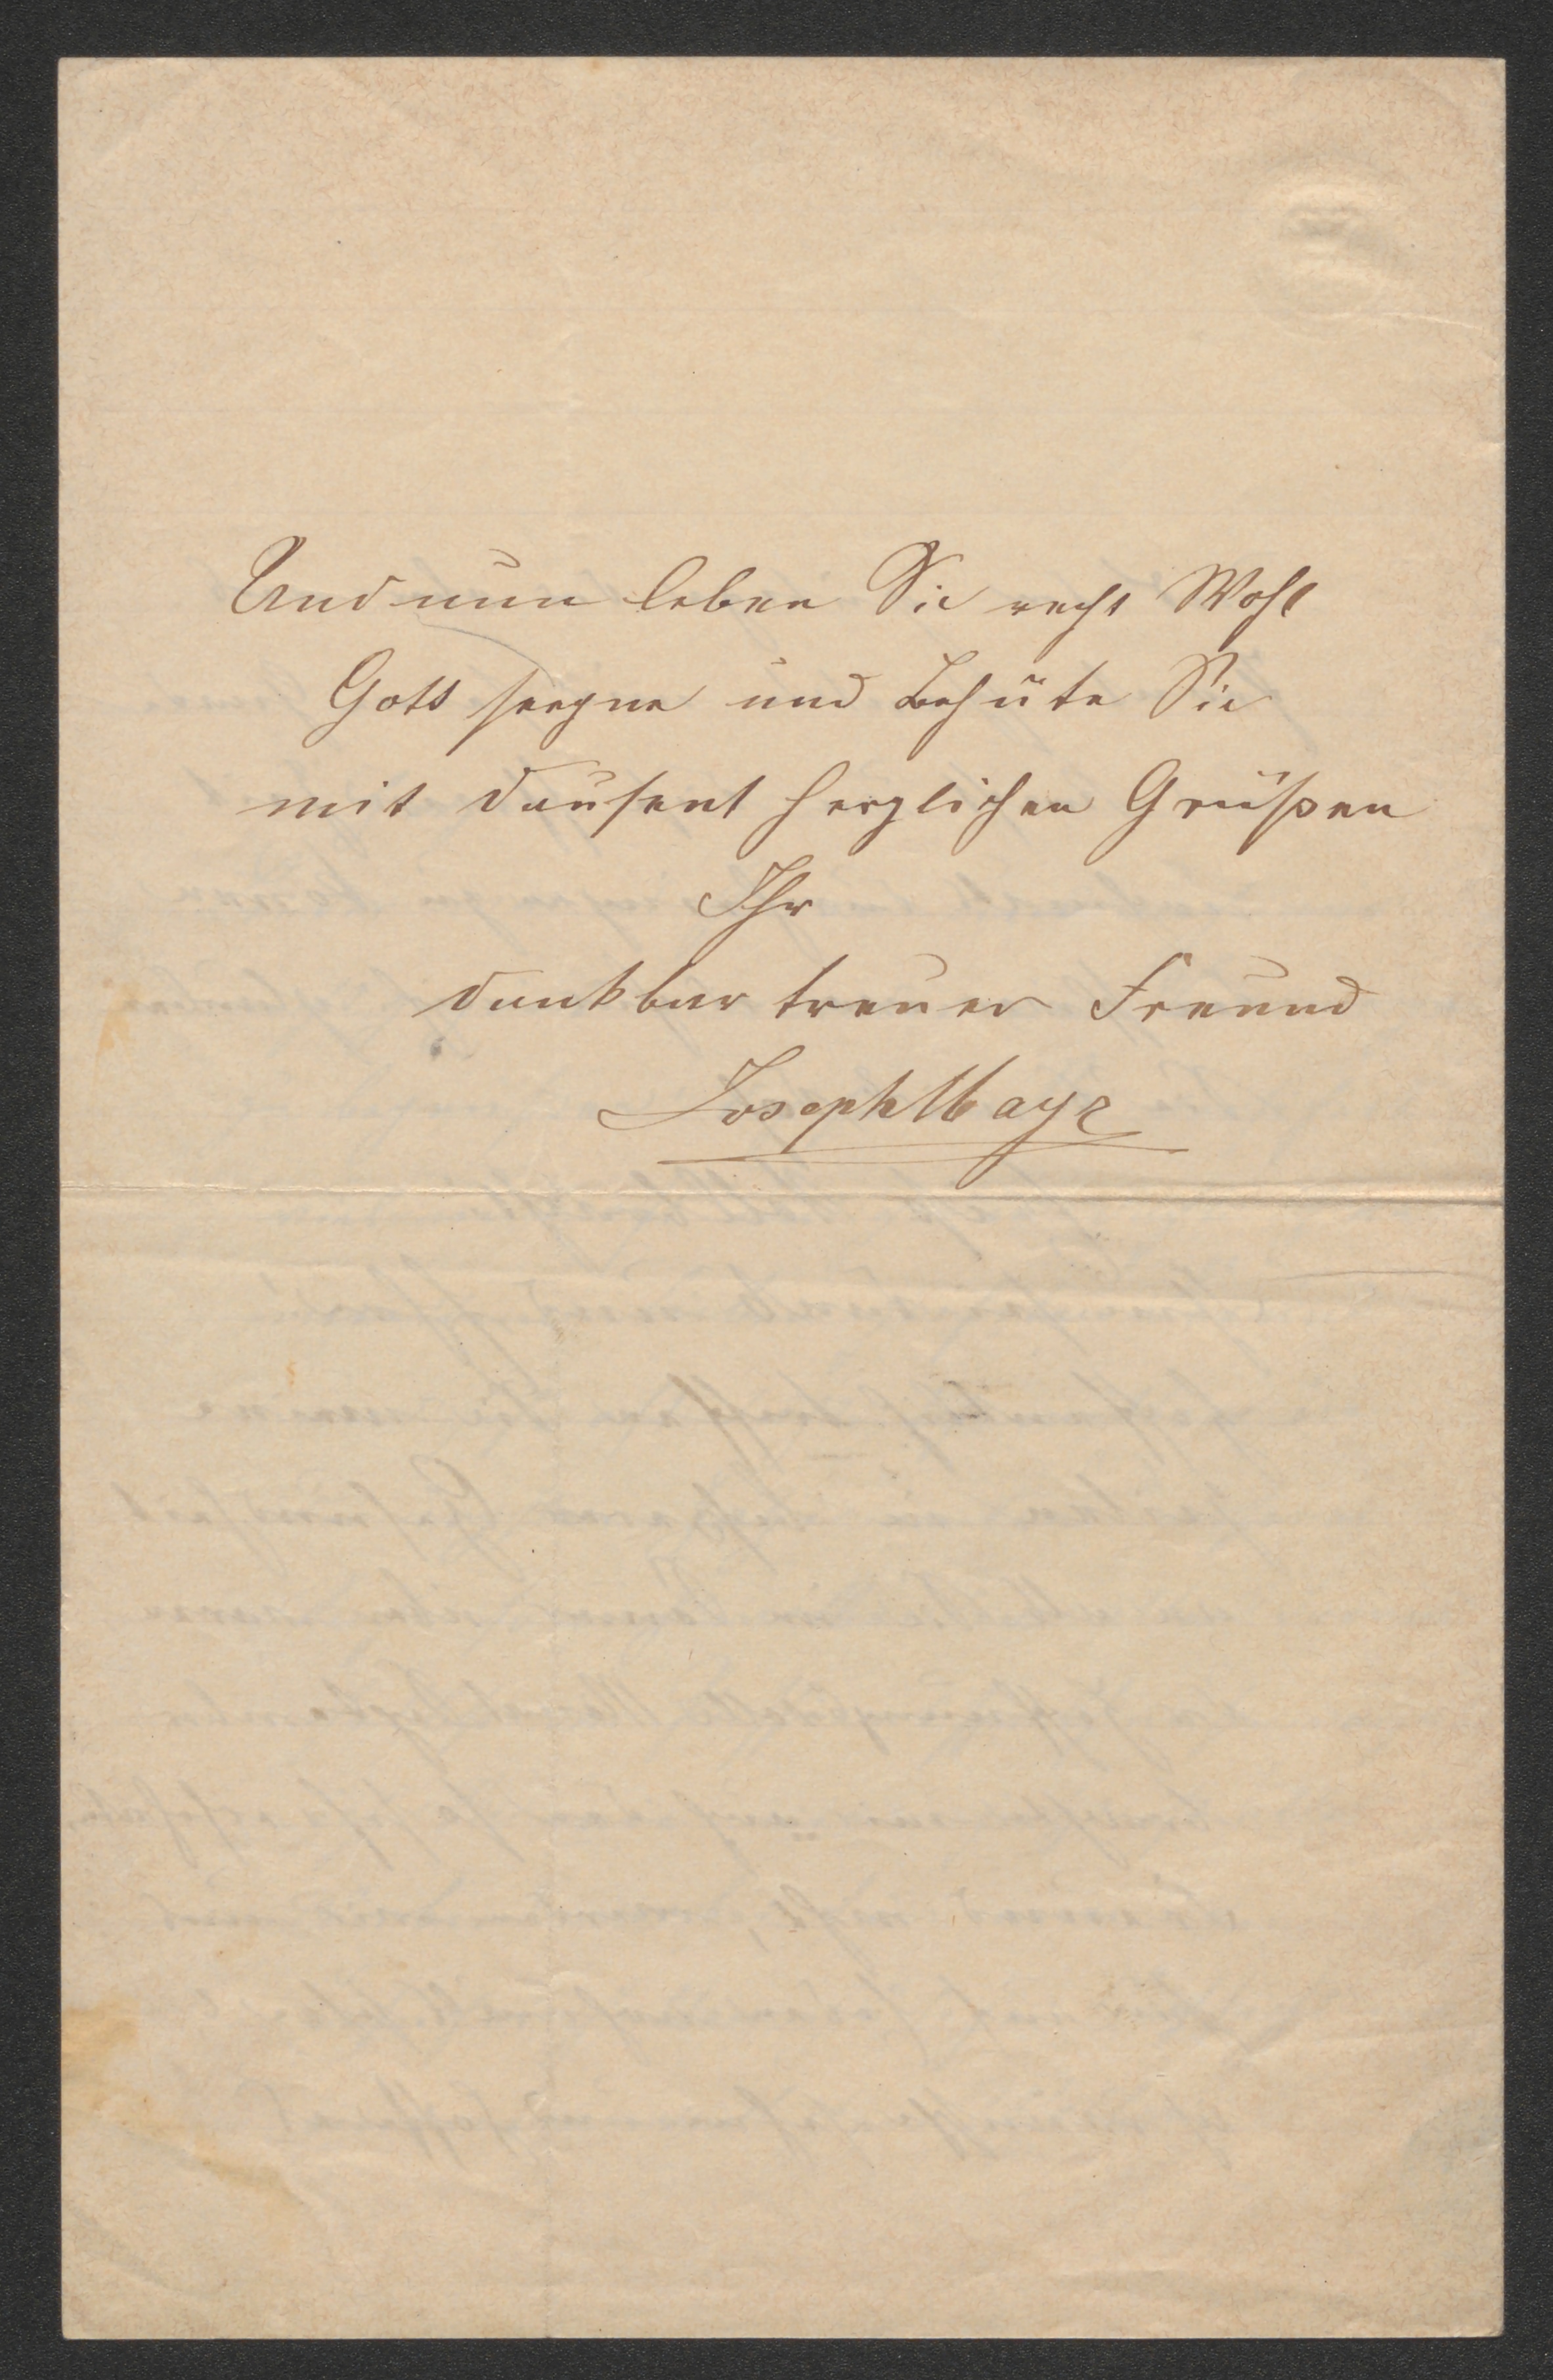 Und nun leben Sie recht Wohl
Gott seegne und Behüte Sie
mit dausent herzlichen Grüßen
Ihr
dankbar treuer Freund
Joseph Mayr